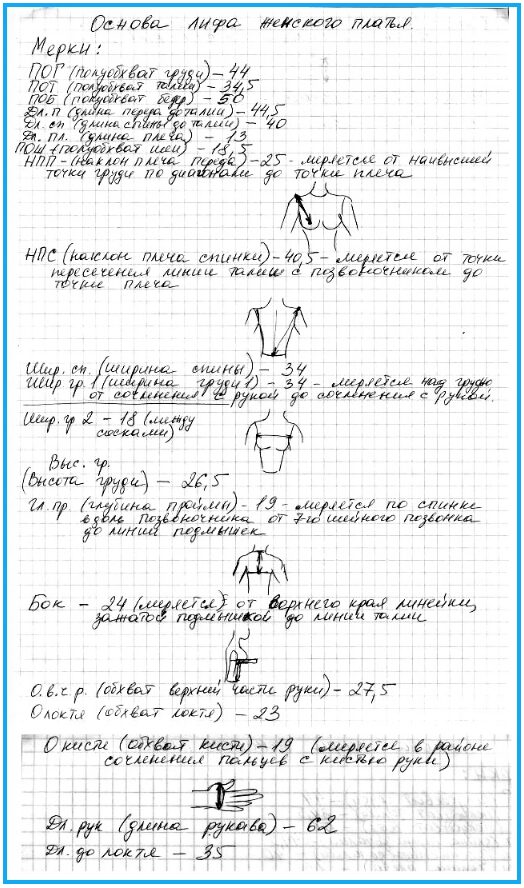 Основа лифа женского платья.
Мерки:
ПОГ (полуобхват груди) – 44
ПОТ (полуобхват талии) – 34,5
ПОБ (полуобхват бедер) – 50
Дл. п (длина переда до талии) – 44,5
Дл. сп. (длина спины до талии) – 40
Дл. пл. (длина плеча) – 13
ПОШ (полуобхват шеи) – 18,5
НПП – (наклон плеча переда) – 25 – меряется от наивысшей
точки груди по диагонали до точки плеча
НПС (наклон плеча спинки) – 40,5 – меряется от точки
пересечения линии талии с позвоночником до
точки плеча
Шир. сп. (ширина спины) – 34
Шир гр. 1 (ширина груди 1) – 34 – меряется над грудью
от сочленения с рукой до сочленения с рукой.
Шир. гр 2 – 18 (между
сосками)
Выс. гр.
(Высота груди) – 26,5
Гл. пр. (глубина проймы) – 19 – меряется по спинке
вдоль позвоночника от 7-го шейного позвонка
до линии подмышек
Бок – 24 (меряется) от верхнего края линейки,
зажатой подмышкой до линии талии
О.в.ч р. (обхват верхней части руки) – 27,5
О локтя (обхват локтя) – 23
О кисти (обхват кисти) – 19 (меряется в районе
сочленения пальцев с кистью руки)
Дл. рук (длина рукава) – 62
Дл. до локтя – 35